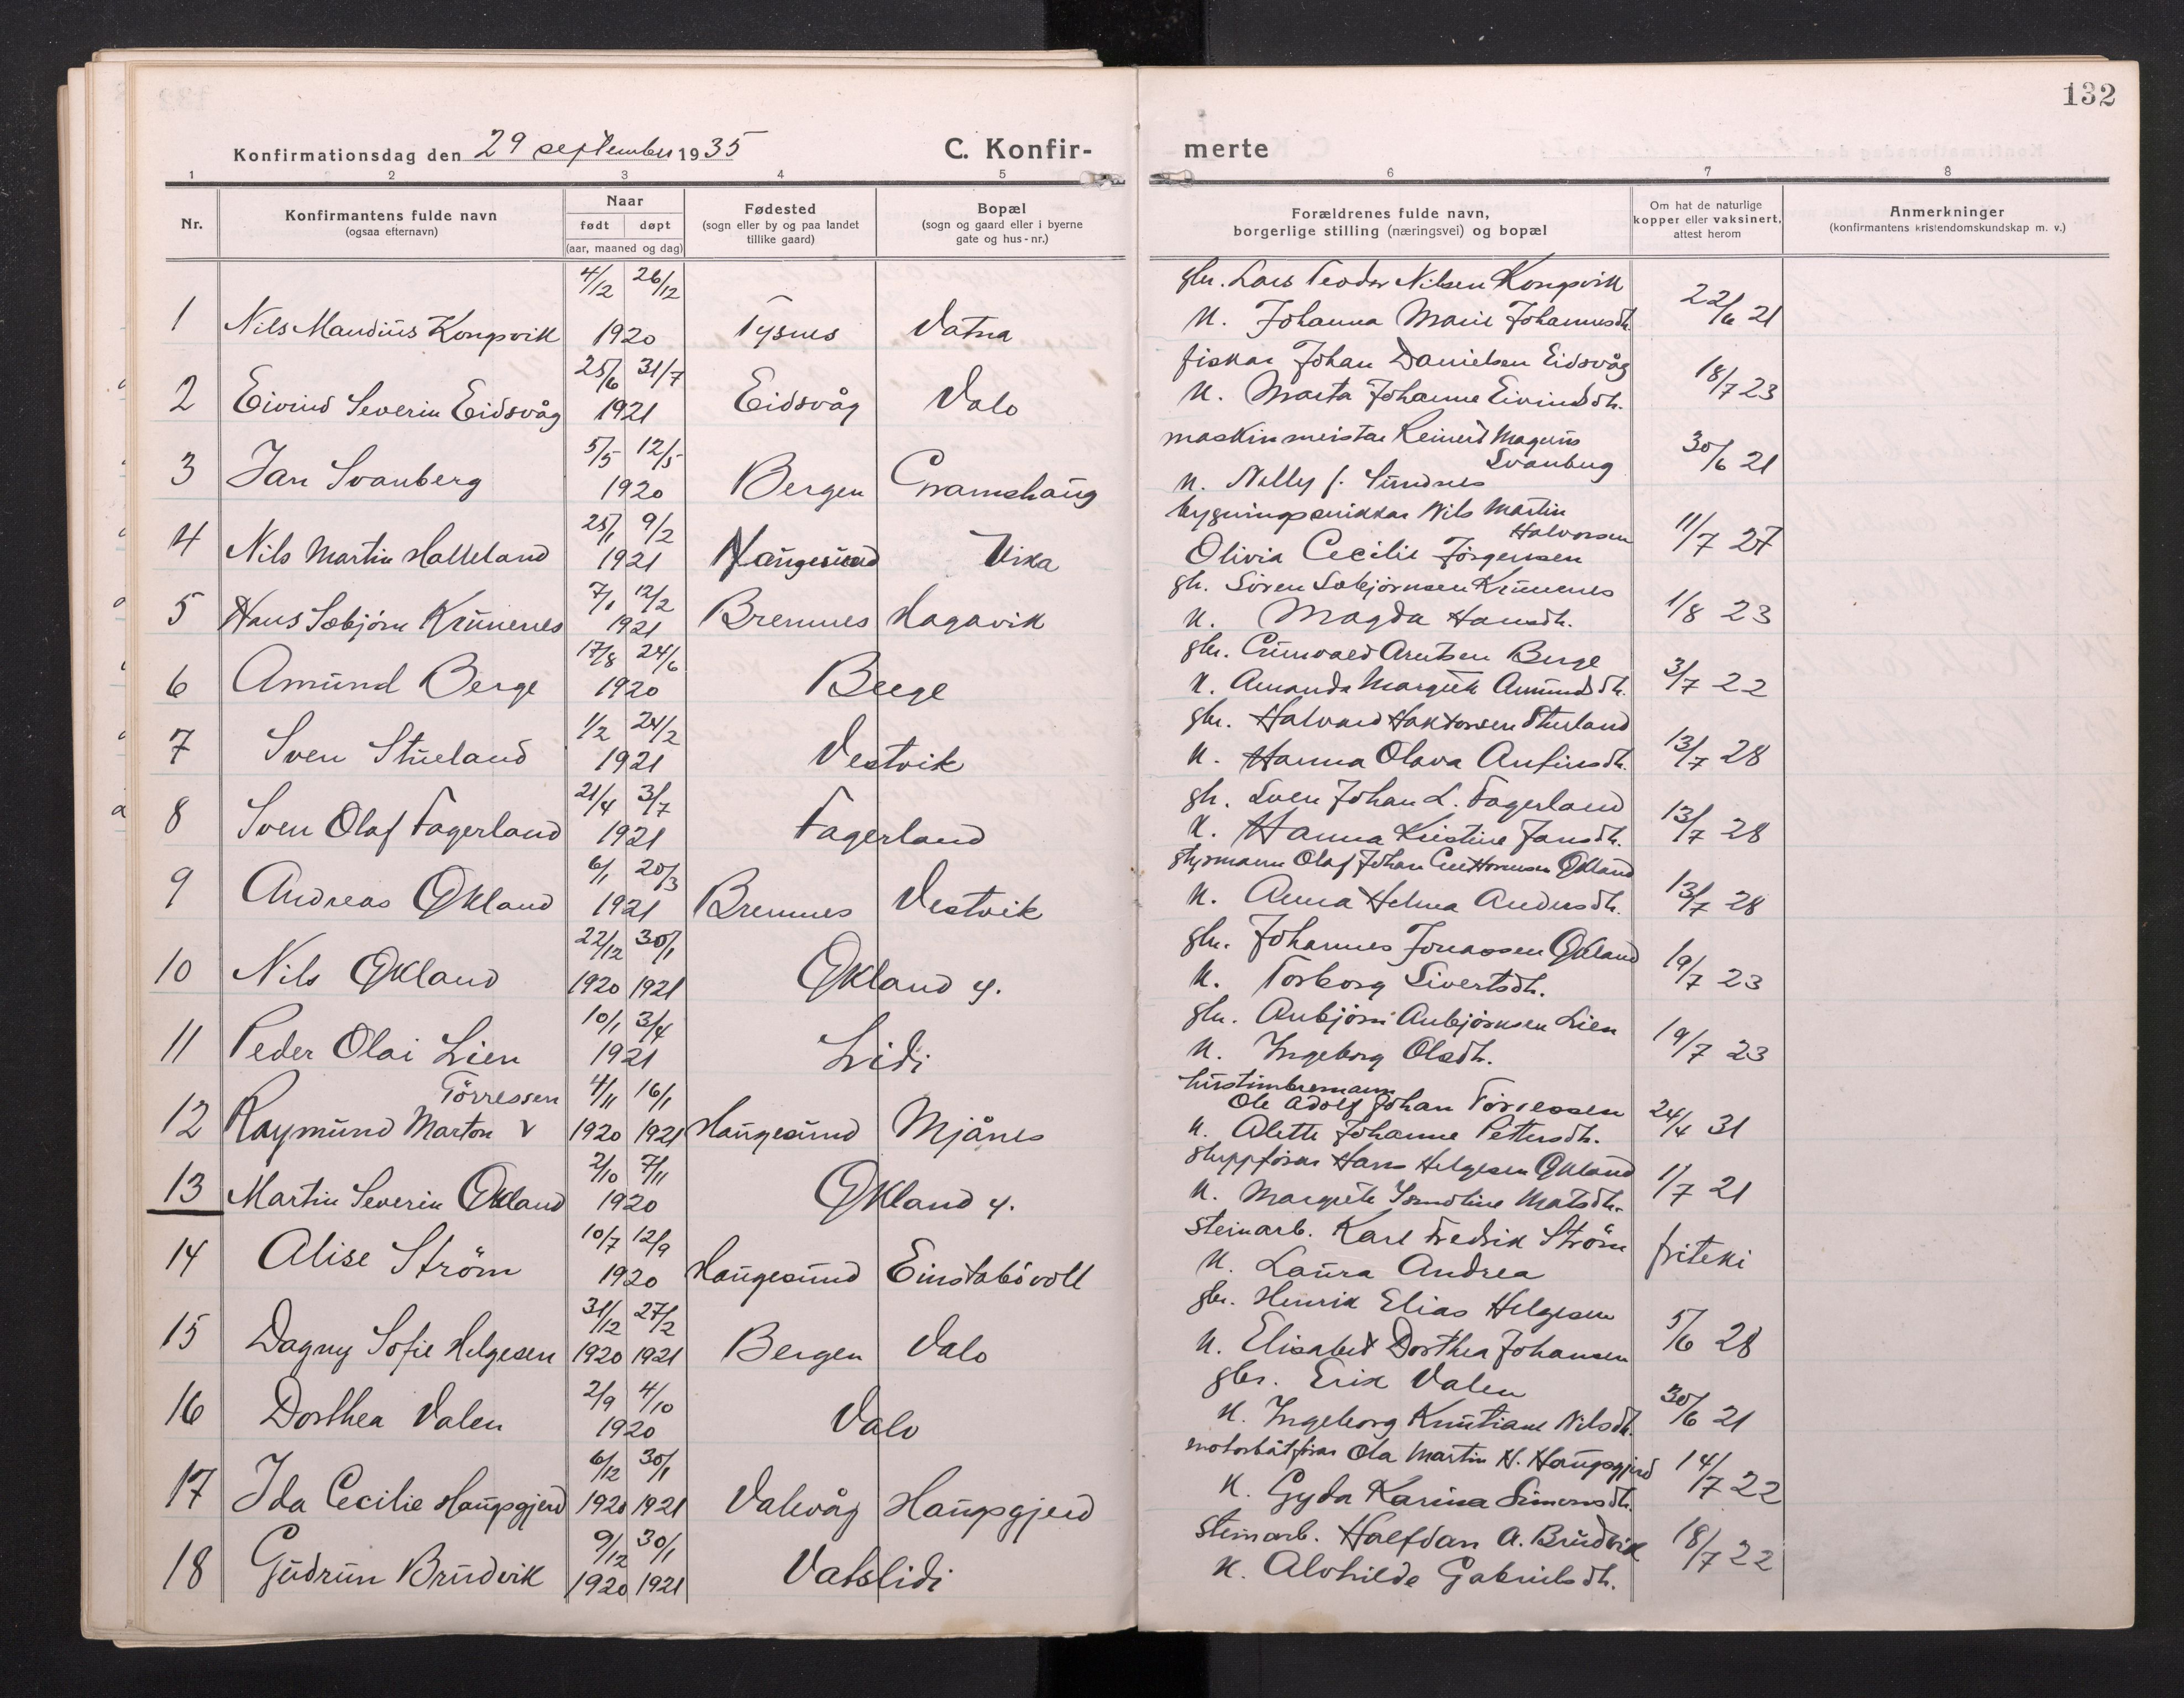 132
Konfirmationsdag den 29 september 1935
C. Konfir-
merte
1 2 3 4 5 6 7 8
Nr.
Konfirmantens fulde navn
(ogsaa efternavn)
Naar
født døpt
(aar, maaned og dag)
Fødested
(sogn eller by og paa landet
tillike gaard)
Bopæl
(sogn og gaard eller i byerne
gate og hus-nr.)
Forældrenes fulde navn,
borgerlige stilling (næringsvei) og bopæl
Om hat de naturlige
kopper eller vaksinert,
attest herom
Anmerkninger
(konfirmantens kristendomskundskap m. v.)
4/12 26/12 gbr. Lars Teodor Nilsen Kongsvik
1 Nils Maudius Kongsvik 1920 Tysnes Vatna K. Johanna Marie Johannesdh. 22/6 21
25/6 31/7 fiskar Johan Danielsen Eidsvåg
2 Eivind Severin Eidsvåg 1921 Eidsvåg Valo K. Marta Johanne Eivindsdh. 18/7 23
5/5 12/5 maskinmeistar Reinert Magnus
Svanberg
3 Jan Svanberg 1920 Bergen Gramshaug K. Nelly f. Sundnes 30/6 21
25/1 9/2 bygningssnikkar Nils Martin
Halvorsen
4 Nils Martin Halleland 1921 Haugesund Vika Olivia Cecilie Jørgensen 11/7 27
7/1 12/2 gbr. Søren Sæbjørnsen Krunenes
5 Hans Sæbjørn Krunenes 1921 Bremnes Hagavik K. Magda Hansdh. 1/8 23
17/8 24/6 gbr. Arntsen Berge
6 Amund Berge 1920 Berge K. Amanda Margrete Amundsdh. 3/7 22
1/2 24/2 gbr. Halvard Haktorsen Stueland
7 Sven Stueland 1921 Vestvik K. Hanna Olava Anfinsdh. 13/7 28
21/4 3/7 gbr. Sven Johan L. Fagerland
8 Sven Olaf Fagerland 1921 Fagerland K. Hanna Kristine Jansdh. 13/7 28
6/1 20/3 styrmann Olaf Johan Guttormsen Økland
9 Andreas Økland 1921 Bremnes Vestvik K. Anna Helma Andersdh. 13/7 28
22/12 30/1 gbr. Johannes Jonassen Økland
10 Nils Økland 1920 1921 Økland y. K. Torborg Sivertsdh. 19/7 23
10/1 3/4 gbr. Anbjørn Anbjørnsen Lien
11 Peder Olai Lien 1921 Lidi K. Ingeborg Olsdh. 19/7 23
Tørressen 4/11 16/1 hustimbremann
Ole Adolf Johan Tørressen
12 Raymund Marton V 1920 1921 Haugesund Mjånes K. Alette Johanne Pettersdh. 24/4 31
2/10 7/11 skuppførar Hans Helgesen Økland
13 Martin Severin Økland 1920 Økland y. K. Margrete Matsdh. 1/7 21
10/7 12/9 steinarb. Karl Fredrik Strøm
14 Alise Ström 1920 Haugesund Einstabövoll K. Laura Andrea friteki
31/12 27/2 gbr. Henrik Elias Helgesen
15 Dagny Sofie Helgesen 1920 1921 Bergen Valo K. Elisabet Dorthea Johansen 5/6 28
2/9 4/10 gbr. Erik Valen
16 Dorthea Valen 1920 Valo K. Ingeborg Knutiane Nilsdh. 30/6 21
6/12 30/1 motorbåtførar Ola Martin H. Haugsgjerd
17 Ida Cecilie Haugsgjerd 1920 1921 Valevåg Haugsgjerd K. Gyda Karina Simonsdh. 14/7 22
9/12 30/1 steinarb. Halfdan A. Brudvik
18 Gudrun Brudvik 1920 1921 Vatslidi K. Alvhilde Gabrielsdh. 18/7 22